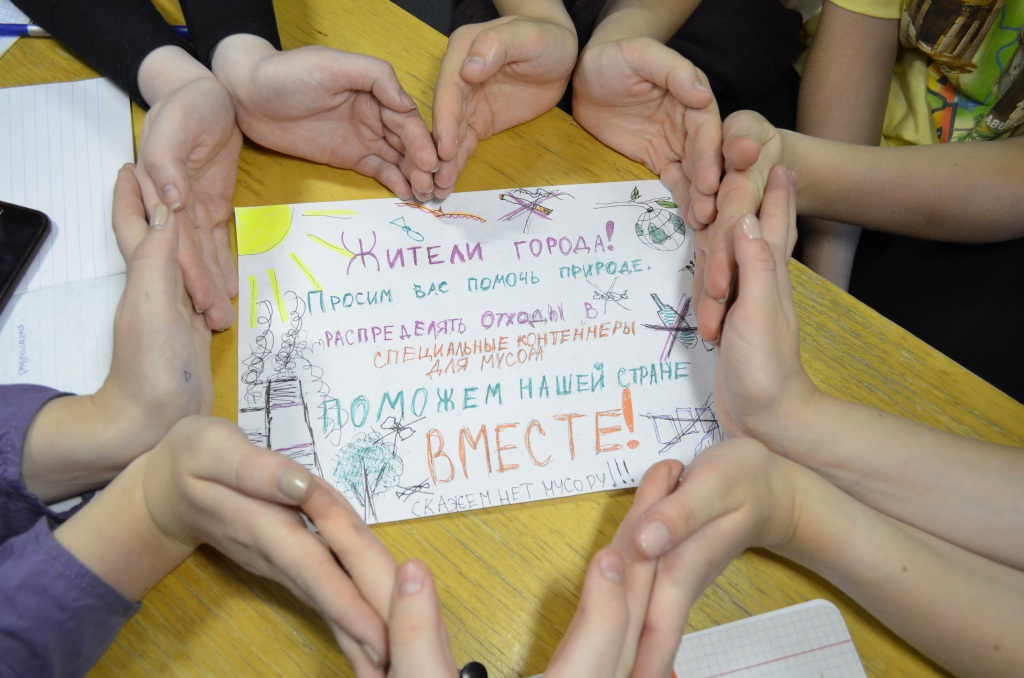 Жители города!
Просим вас помочь природе.
распределять отходы в
специальные контейнеры
для мусора
Поможем нашей стране
ВМЕСТЕ!
СКАЖЕМ НЕТ МУСОРУ!!!